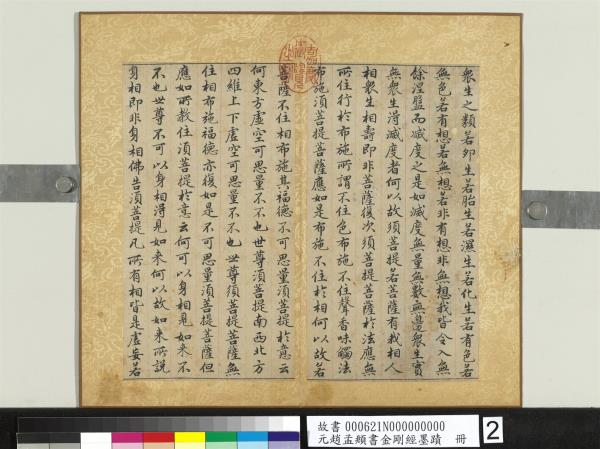 衆生之類若卵生若胎生若濕生若化生若有色若
無色若有想若無想若非有想非無想我皆令入無
餘涅盤而滅度之是如滅度無量無數無邊衆生實
無衆生淂滅度者何以故須菩提若菩薩有我相人
相衆生相壽即非菩薩復次須菩提菩薩於法應無
所住行於布施所謂不住色布施不住聲香味觸法
布施湏菩提菩薩應如是布施不住於相何以故若
菩薩不住相布施其福德不可思量湏菩提於意云
何東方虛空可思量不不也世尊湏菩提南西北方
四維上下虛空可思量不不也世尊須菩提菩薩無
住相布施福德亦復如是不可思量湏菩提菩薩但
應如所教住湏菩提於意云何可以身相見如來不
不也世尊不可以身相淂見如來何以故如來所說
身相即非身相佛告湏菩提凡所有相皆是虛妄若
故書 000621N000000000
元趙孟頫書金剛經墨蹟 冊
2